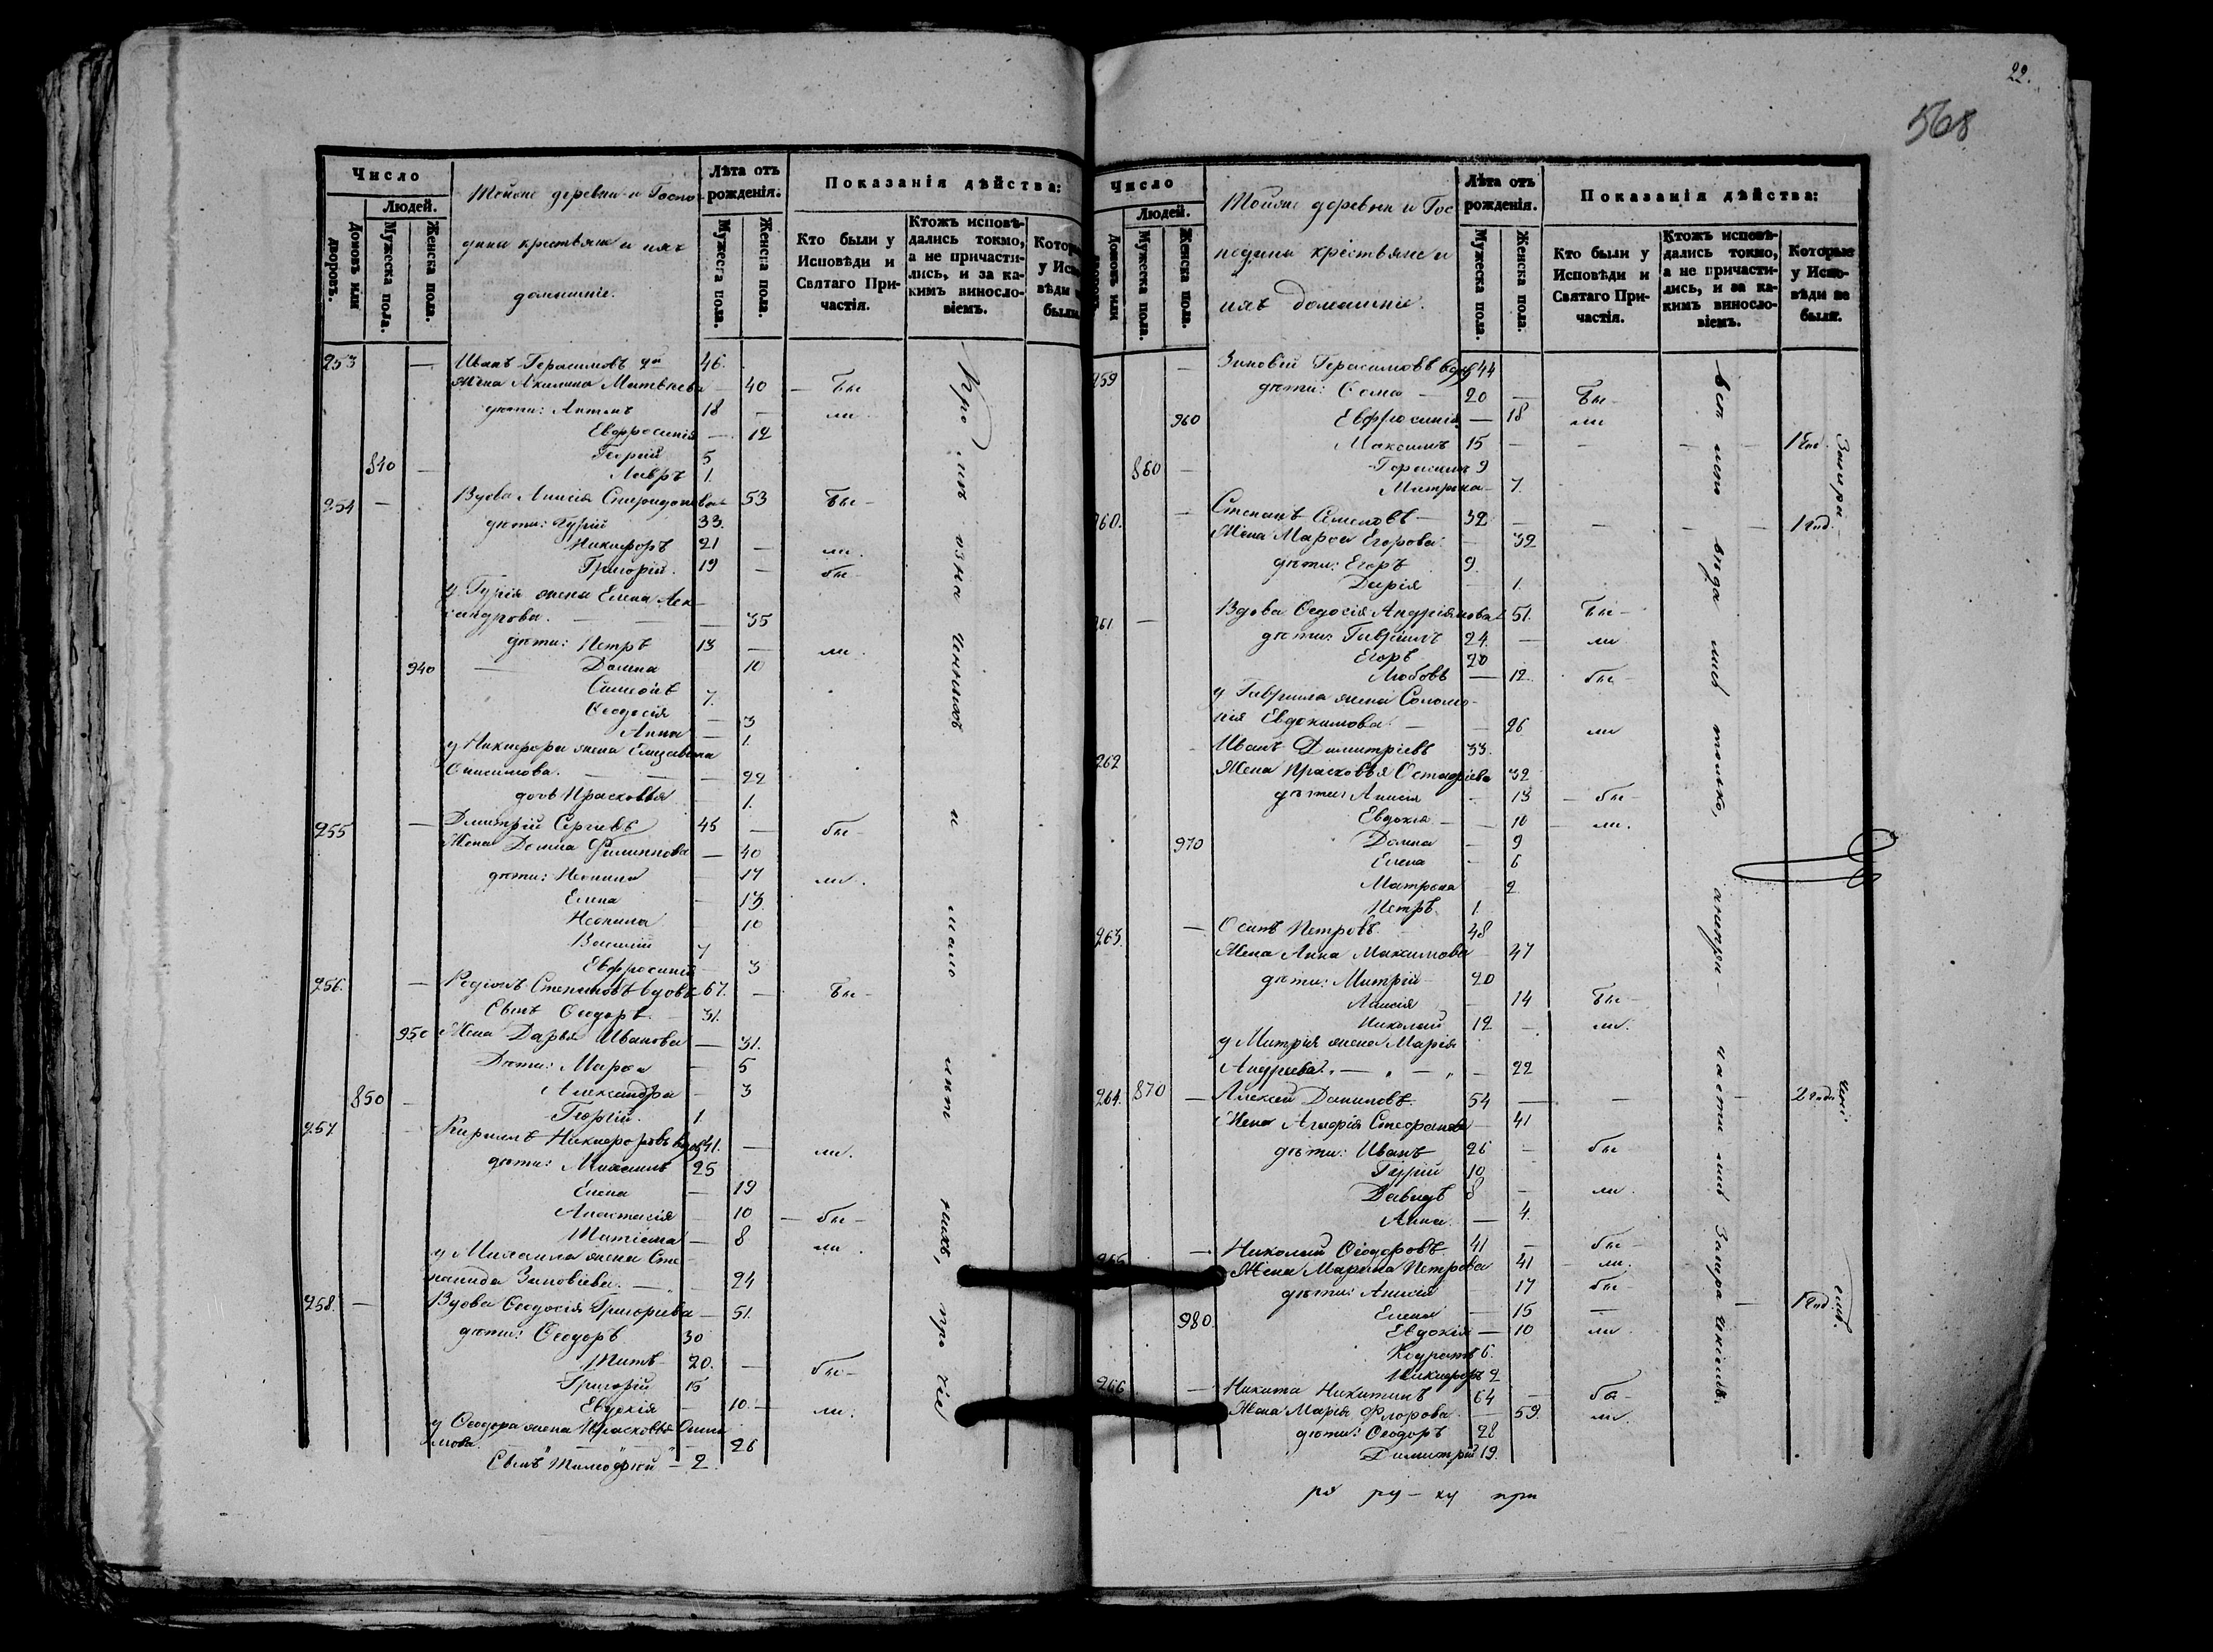 22.
568
Число
Людей.
Домовъ или дворовъ.
Мужеска пола.
Женска пола.
Тойже деревни и Госпо-
дина крестьяне и ихъ
домашніе.
Лѣта отъ рожденія.
Мужеска пола.
Женска пола.
Показанія дѣйства:
Кто были у Исповѣди и Святаго Причастія.
Ктожъ исповѣдались токмо, а не причастились, и за какимъ винословіемъ.
253 — Иванъ Герасимовъ 46.
Жена Акилина Матвѣева — 40 — бы
дѣти: Антонъ 18 — ли
Евфросинія — 12
Георгій 5
840 — Лавръ 1.
254 — Вдова Анисія Спиридонова 53 бы —
дѣти: Гурій 33.
Никифоръ 21 — ли.
Григорій. 19 — бы —
у Гурія жена Елена Лек-
сандрова. — 35
дѣти: Петръ 13 — ли.
940 — Домна 10
Симеонъ 7.
Ѳеодосія — 3
Анна — 1.
у Никифора жена Елизавета
Онисимова. — 22
дочь Прасковья — 1.
255 — Дмитрій Сергѣевъ 45 — бы —
Жена Домна Филиппова — 40
дѣти: Неонила — 17 ли.
Елена — 13.
Неонила — 10
Василій 7
Евфросинія — 3
256. — Родіонъ Степановъ вдовъ 67. — бы —
Сынъ Ѳеодоръ. — 31.
950 Жена Дарья Иванова — 31.
Дѣти: Марѳа — 5
Александра — 3
850 — Георгій. 1.
257 — Кирилъ Никифоровъ вдовъ 41. — ли.
дѣти: Михаилъ 25
Елена — 19
Анастасія — 10 — бы —
Татіана — 8 ли.
у Михаила жена Сте-
панида Зиновіева. — 24
258. — Вдова Ѳеодосія Григорьева — 51.
дѣти: Ѳеодоръ 30
Титъ 20. — бы —
Григорій 15
Евдокія — 10. — ли.
у Ѳеодора жена Прасковья
26
Сынъ Тимоѳей — 2.
и мало лѣт нихъ, про чіе
Число
Людей.
Домовъ или дворовъ
Мужеска пола.
Женска пола.
Тойже деревни и Гос
подина крестьяне и
ихъ домашніе.
Лѣта отъ рожденія.
Мужеска пола.
Женска пола.
Показанія дѣйства:
Кто были у Исповѣди и Святаго Причастія.
Ктожъ исповѣдались токмо, а не причастились, и за какимъ винословіемъ.
Которые у Исповѣди не были.
259 — Зиновей Герасимовъ вдовъ 44
дѣти: Ѳома — 20 — бы —
960 Евфросинія — 18 ли
Максимъ 15 — — — — 1 год.
860 — Герасимъ 9
Матрена — 7.
260. — Степанъ Семеновъ — 32 — — — 1 год.
Жена Марѳа Егорова. — 32
дѣти: Егоръ 9.
Дарія — 1.
261 — Вдова Ѳедосія Андріянова 51. бы —
дѣти: Гавріилъ 24. — ли
Егоръ 20
Любовь — 12. бы —
у Гаврила жена Соломо-
нія Евдокимова. — 26 ли
262 Иванъ Димитріевъ 33.
Жена Прасковья 32
дѣти: Анисія — 13 — бы —
Евдокія — 10 — ли.
970 Домна — 9
Елена — 6
Матрона 2
Петръ 1.
263. — Осипъ Петровъ 48
Жена Анна Максимова — 47
дѣти: Митрій — 20
Анисія — 14 бы —
Николай 12 — ли.
у Митрія жена Марія
Андреева. — 22
264. 870 — Алексѣй Даниловъ. 54 — — — 2 год.
Жена Агафія Стефанова — 41
дѣти: Иванъ 26 — бы
Гурій 10
Давидъ 8 — ли.
Анна. — 4.
265 — Николай Ѳеодоровъ 41 — бы —
Жена Марина Петрова 41 — ли.
дѣти: Анисія 17 бы —
980. Елена — 15 — 1 год.
Евдокія — 10 ли.
Кодратъ 6.
Никифоръ 2
266 — Никита Никитинъ 64 — бы —
Жена Марія Флорова — 59. ли.
дѣти: Ѳеодоръ 28
Димитрій 19.
всѣ испо вѣда лись только, а непри- части лись
ру — ку при